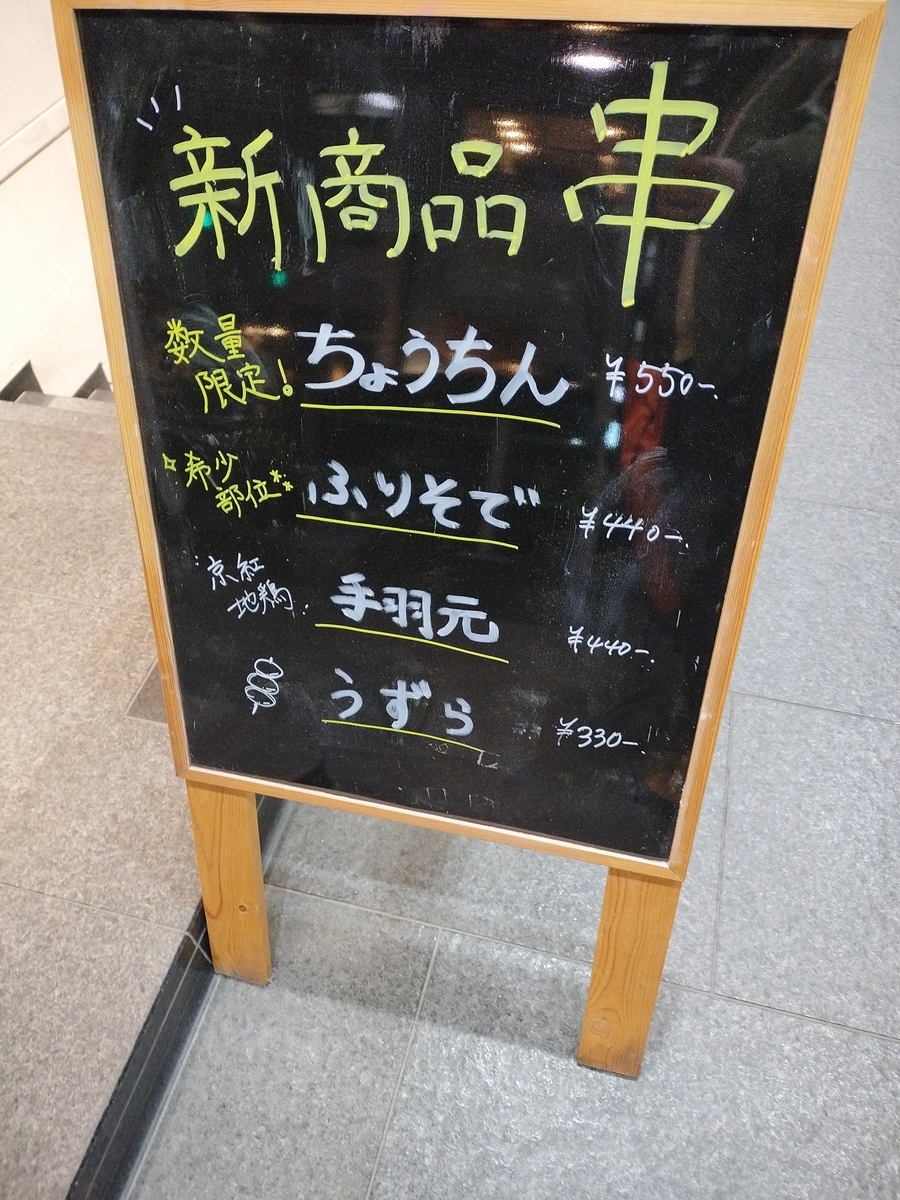 新商品 串
数量
限定! ちょうちん ¥550-
希少
部位 ふりそで ¥440-
京紅
地鶏 手羽元 ¥440-
うずら ¥330-